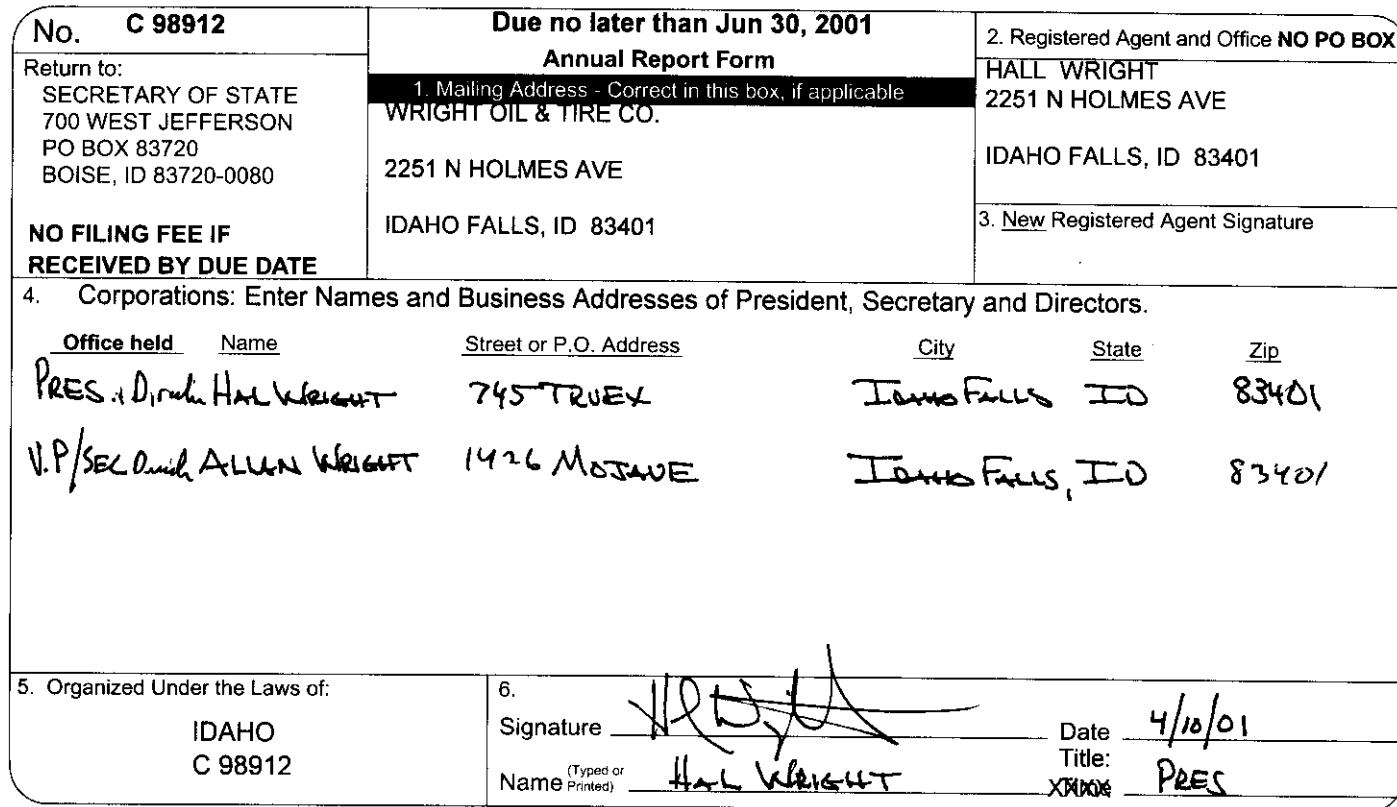 No. C 98912
Return to:
SECRETARY OF STATE
700 WEST JEFFERSON
PO BOX 83720
BOISE, ID 83720-0080
NO FILING FEE IF
RECEIVED BY DUE DATE
Due no later than Jun 30, 2001
Annual Report Form
1. Mailing Address - Correct in this box, if applicable
WRIGHT OIL & TIRE CO.
2251 N HOLMES AVE
IDAHO FALLS, ID 83401
2. Registered Agent and Office NO PO BOX
HALL WRIGHT
2251 N HOLMES AVE
IDAHO FALLS, ID 83401
3. New Registered Agent Signature
4. Corporations: Enter Names and Business Addresses of President, Secretary and Directors.
Office held Name Street or P.O. Address City State Zip
PRES. HAL WRIGHT 745 TRUEX IDAHO FALLS ID 83401
V.P/SEC ALLAN WRIGHT 1426 MOJAVE IDAHO FALLS, ID 83401
5. Organized Under the Laws of:
IDAHO
C 98912
6.
Signature
Date 4/10/01
Name (Typed or Printed) HAL WRIGHT
Title: PRES